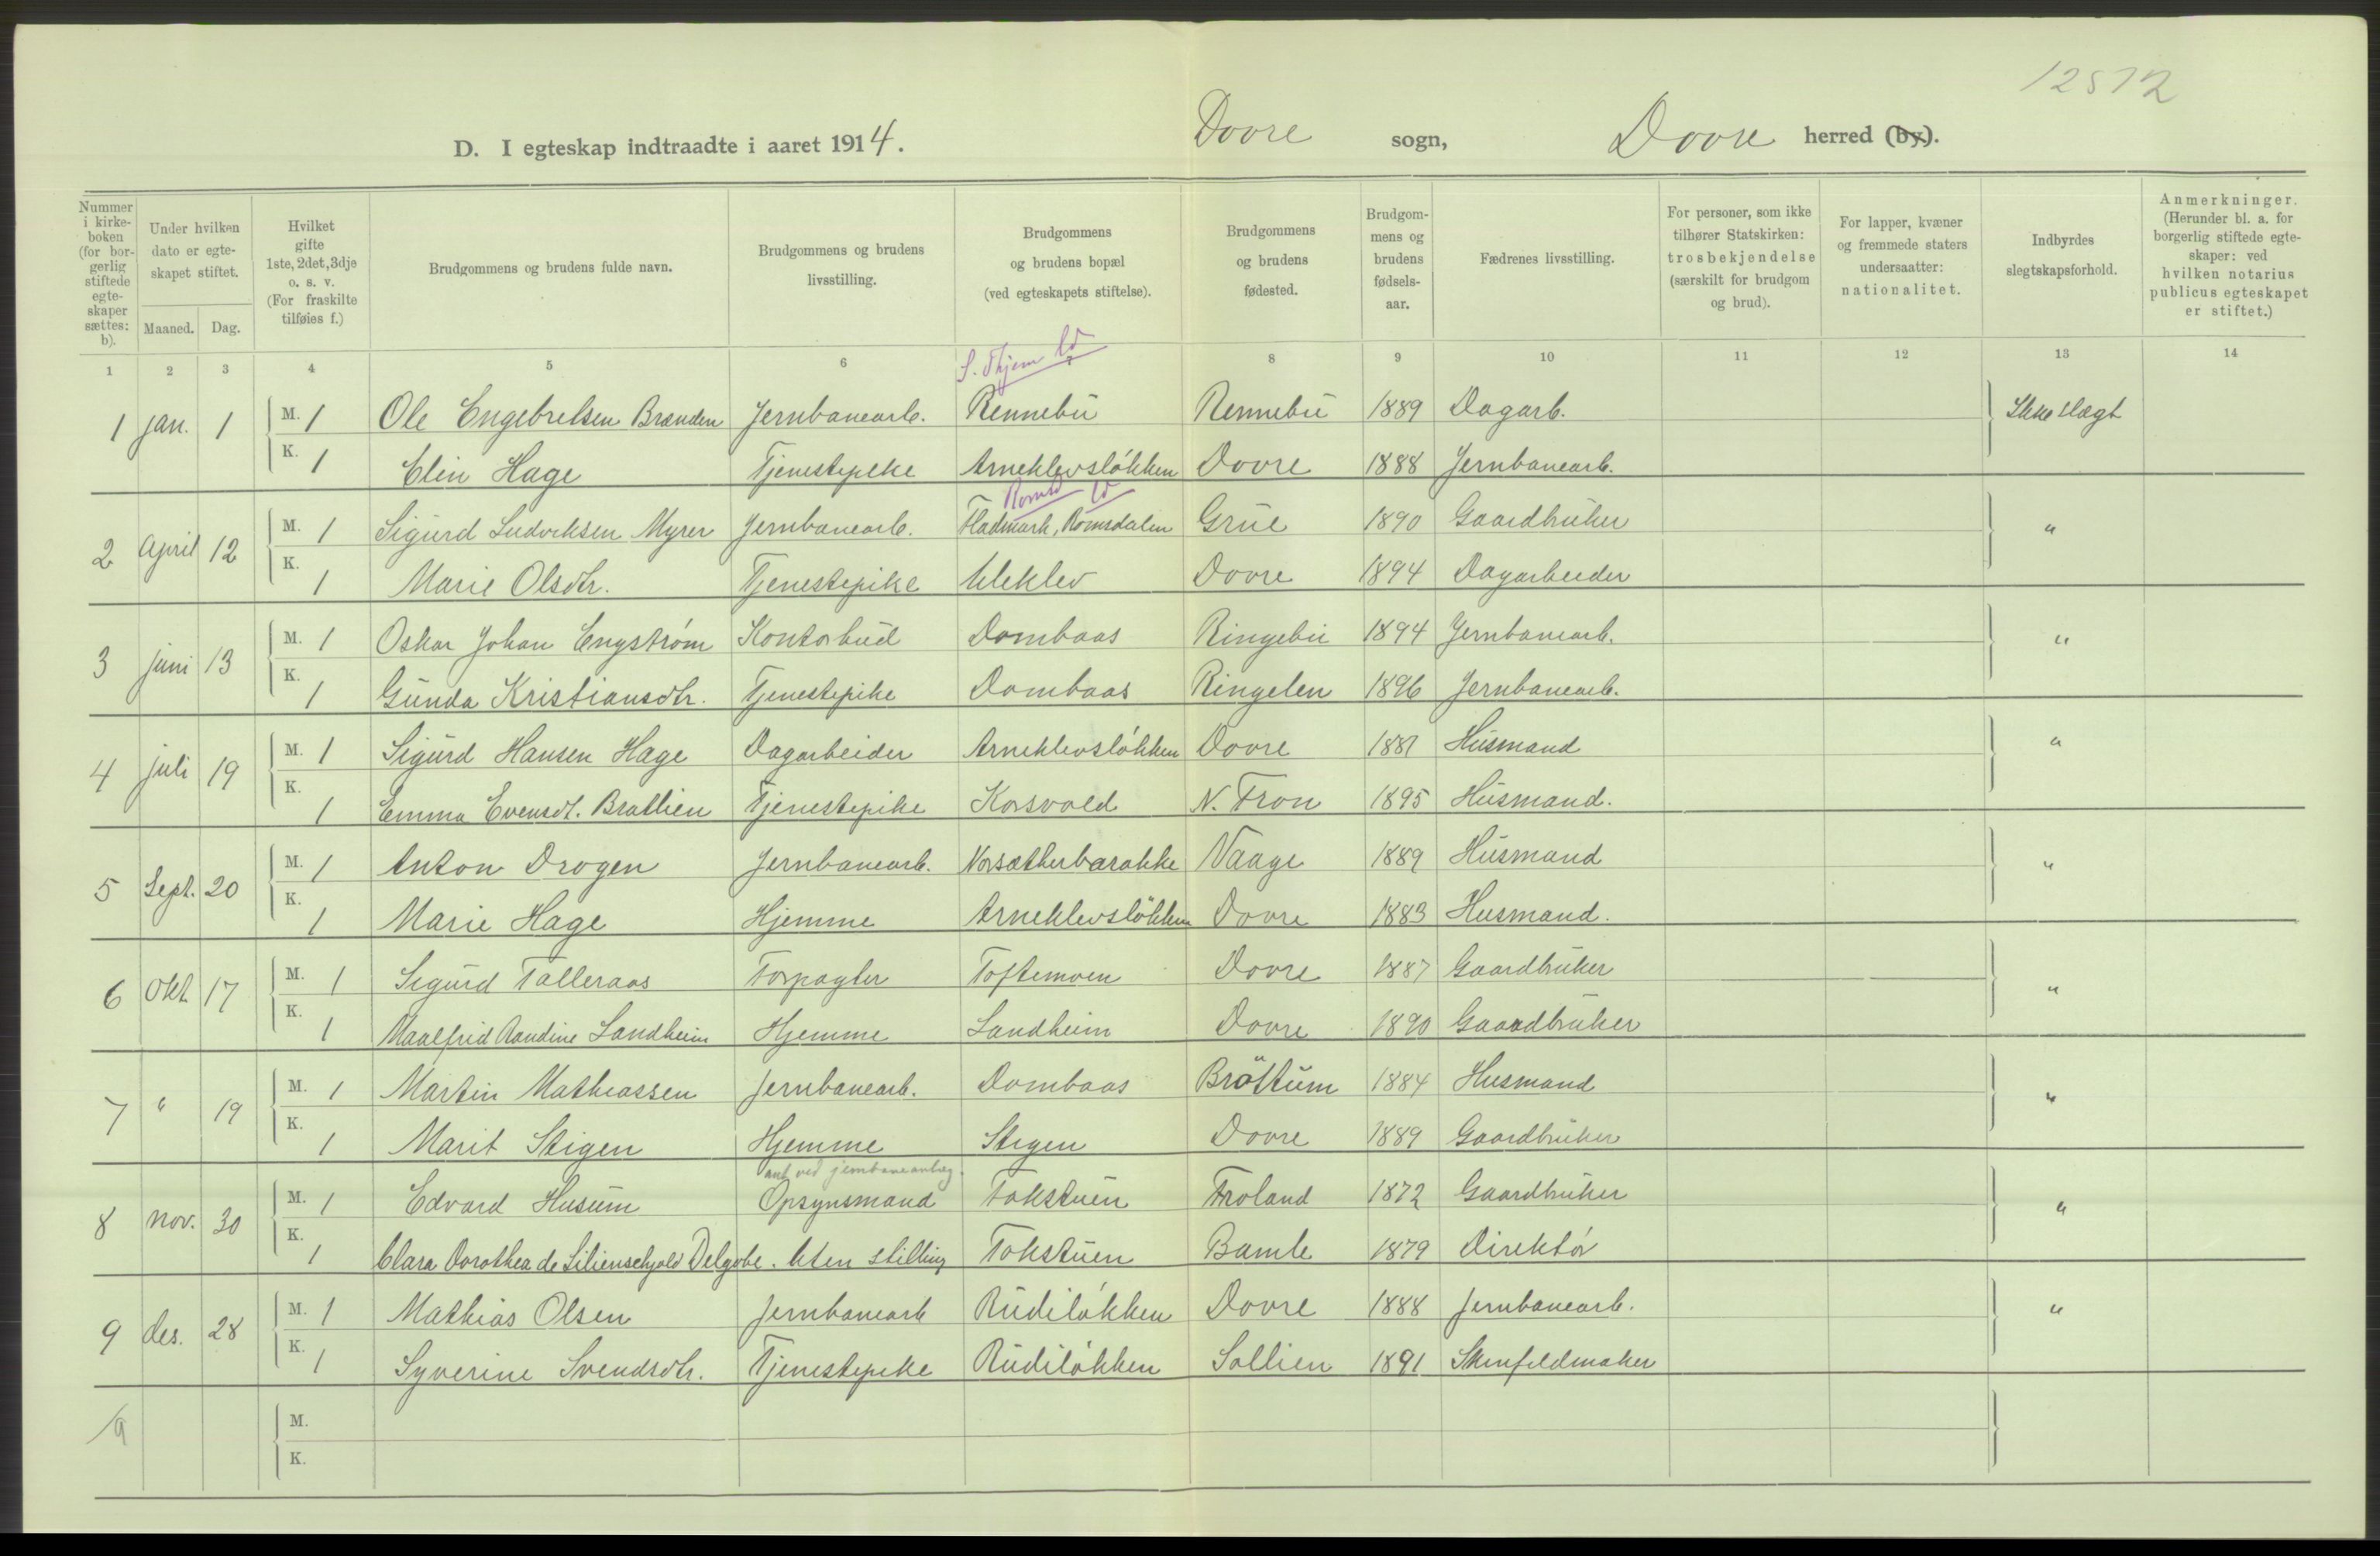 12572
D. I egteskap indtraadte i aaret 1914. Dovre sogn, Dovre herred (by).
Nummer i kirkeboken (for borgerlig stiftede egteskaper sættes: b).
Under hvilken dato er egteskapet stiftet.
Maaned. Dag.
Hvilket gifte 1ste, 2det, 3dje o. s. v. (For fraskilte tilføies f.)
Brudgommens og brudens fulde navn.
Brudgommens og brudens livsstilling.
Brudgommens og brudens bopæl (ved egteskapets stiftelse).
Brudgommens og brudens fødested.
Brudgommens og brudens fødselsaar.
Fædrenes livsstilling.
For personer, som ikke tilhører Statskirken: trosbekjendelse (særskilt for brudgom og brud).
For lapper, kvæner og fremmede staters undersaatter: nationalitet.
Indbyrdes slegtskapsforhold.
Anmerkninger. (Herunder bl. a. for borgerlig stiftede egteskaper: ved hvilken notarius publicus egteskapet er stiftet.)
1 2 3 4 5 6 7 8 9 10 11 12 13 14
S. Thjem Ld
1 jan. 1 M. 1 Ole Engebretsen Brænden Jernbanearb. Rennebu Rennebu 1889 Dagarb. Ikke slægt
K. 1 Elin Hage Tjenestepike Arneklevsløkken Dovre 1888 Jernbanearb.
Romsd Ld
2 April 12 M. 1 Sigurd Ludviksen Myrer Jernbanearb. Fladmark, Romsdalen Grue 1890 Gaardbruker "
K. 1 Marie Olsdtr. Tjenestepike Uleklev Dovre 1894 Dagarbeider
3 juni 13 M. 1 Oskar Johan Engstrøm Kontorbud Dombaas Ringebu 1894 Jernbanearb. "
K. 1 Gunda Kristiansdtr. Tjenestepike Dombaas Ringelen 1896 Jernbanearb.
4 juli 19 M. 1 Sigurd Hansen Hage Dagarbeider Arneklevsløkken Dovre 1881 Husmand "
K. 1 Emma Evensdt. Brætlien Tjenestepike Korsvold N. Fron 1895 Husmand.
5 Sept. 20 M. 1 Anton Drogen Jernbanearb. Vorsætherbarakke Vaage 1889 Husmand "
K. 1 Marie Hage Hjemme Arneklevsløkken Dovre 1883 Husmand.
6 Okt 17 M. 1 Sigurd Talleraas Forpagter Toftemoen Dovre 1887 Gaardbruker "
K. 1 Maalfrid Randine Landheim Hjemme Landheim Dovre 1890 Gaardbruker
7 " 19 M. 1 Martin Mathiassen Jernbanearb. Dombaas Brøttum 1884 Husmand "
K. 1 Marit Stigen Hjemme Stigen Dovre 1889 Gaardbruker
ant ved jernbaneanlæg.
8 nov. 30 M. 1 Edvard Husum Opsynsmand Fokstuen Froland 1872 Gaardbruker "
K. 1 Clara Dorothea de Lilienschjold Delgobe. Uten stilling Fokstuen Bamle 1879 Direktør
9 des. 28 M. 1 Mathias Olsen Jernbanearb Rudiløkken Dovre 1888 Jernbanearb. "
K. 1 Syverine Svendsdtr. Tjenestepike Rudiløkken Sollien 1891 Skinfeldmaker
/9 M.
K.